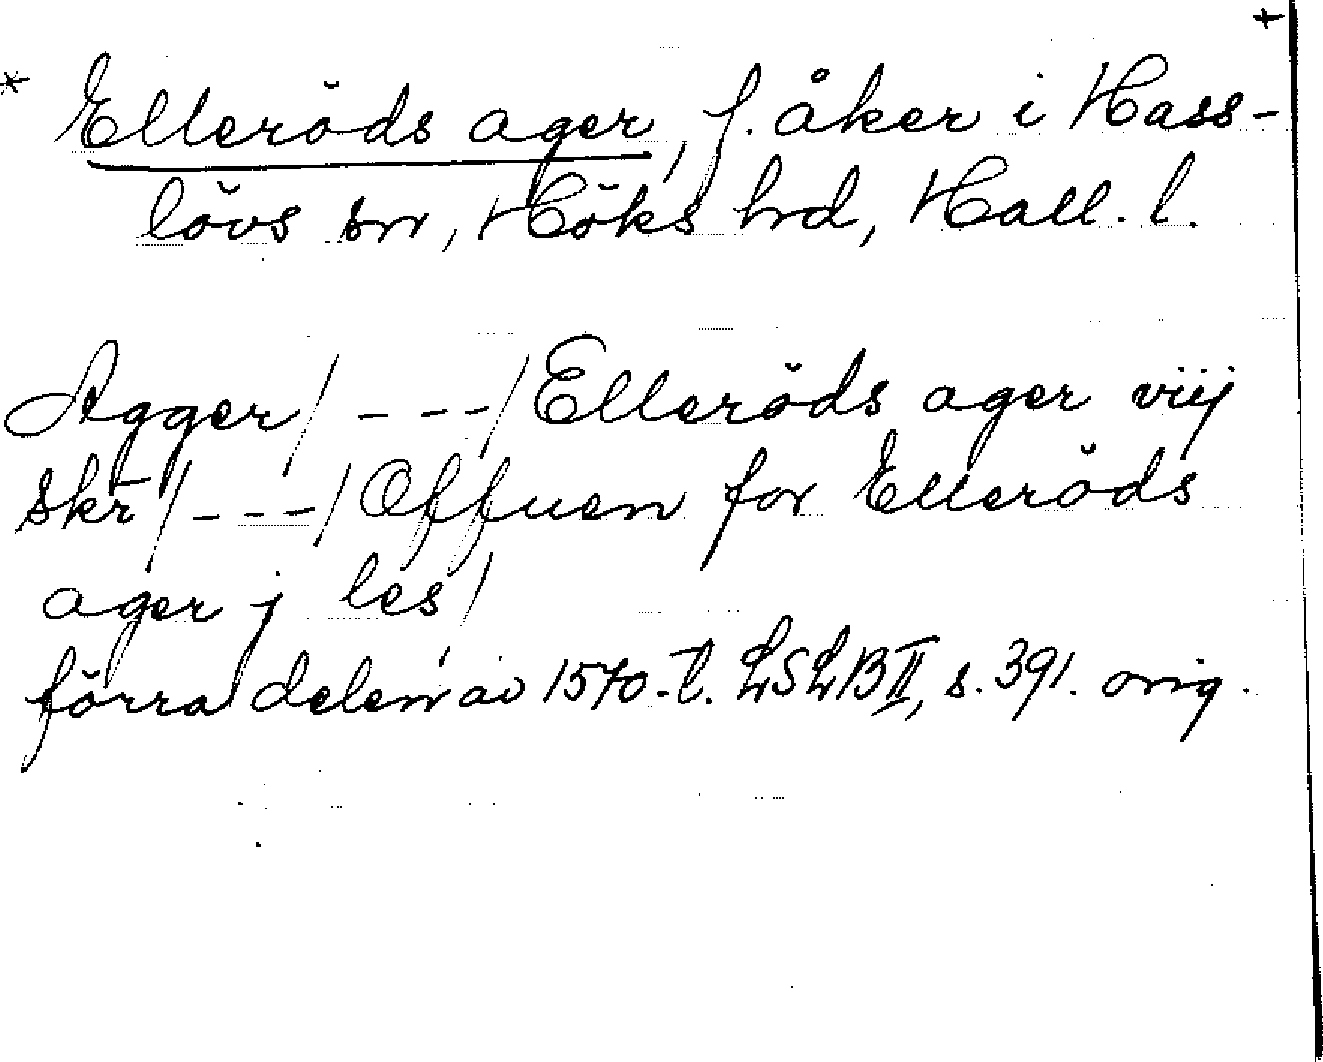 +
* Elleröds ager, f. åker i Hass-
lövs sn, Höks hrd, Hall. l.
Agger / - - - / Elleröds ager viij
skr / - - - / Offuen for Elleröds
ager j les /
förra delen av 1570-t. LSLB II, s. 391. orig.